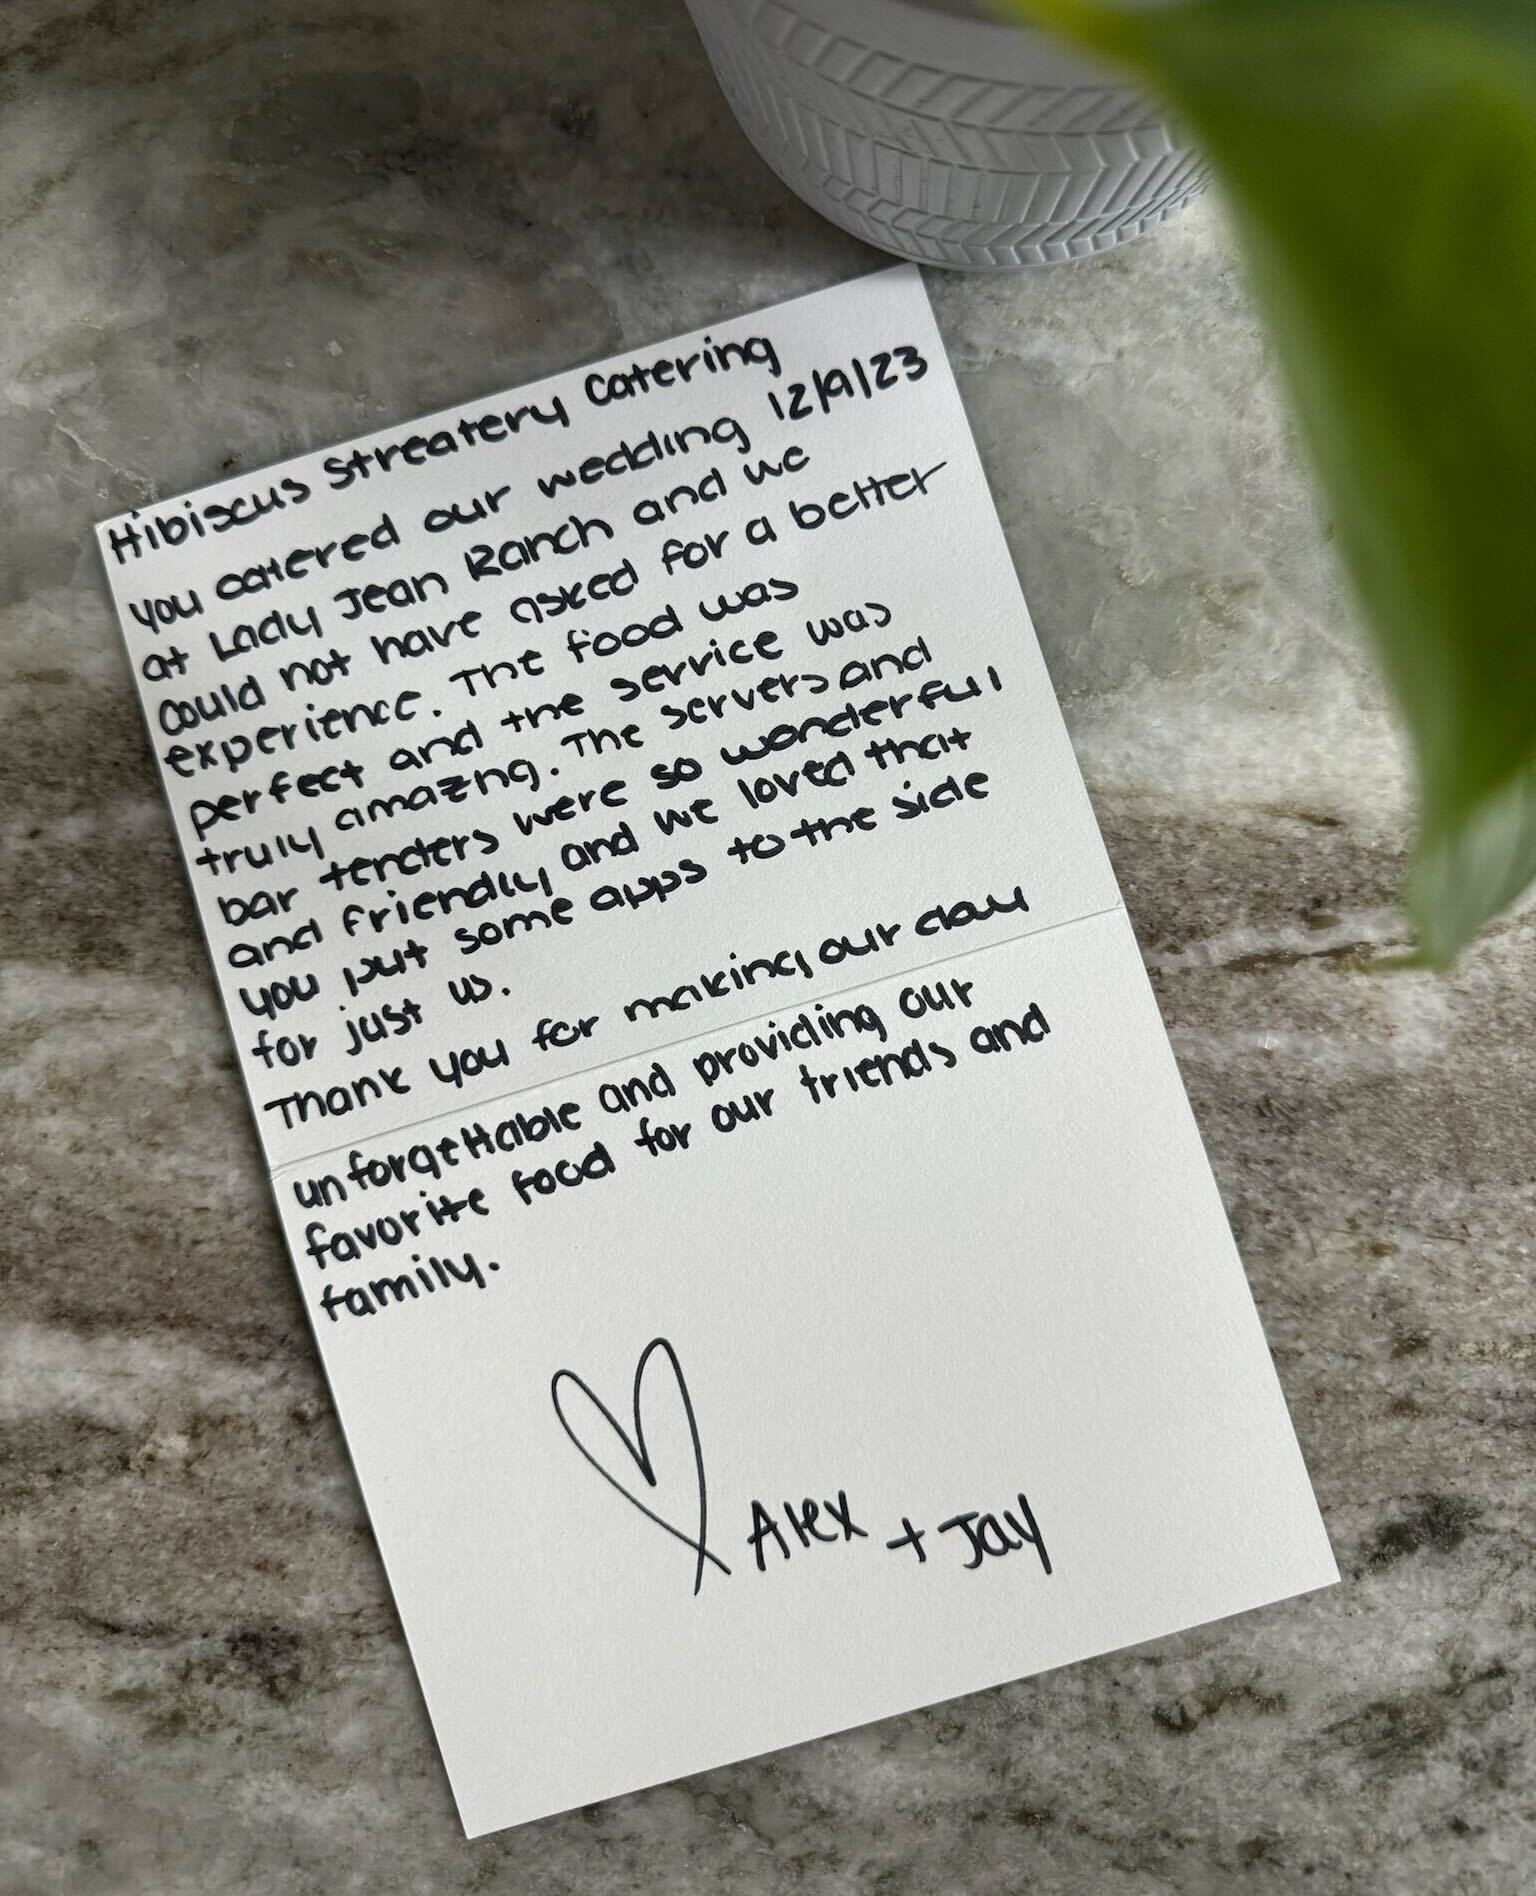 Hibiscus Streatery Catering
you catered our wedding 12/9/23
at Lady Jean Ranch and we
could not have asked for a better
experience. The food was
perfect and the service was
truly amazing. The servers and
bar tenders were so wonderful
and friendly and we loved that
you put some apps to the side
for just us.
Thank you for making our day
unforgettable and providing our
favorite food for our friends and
family.
Alex + Jay